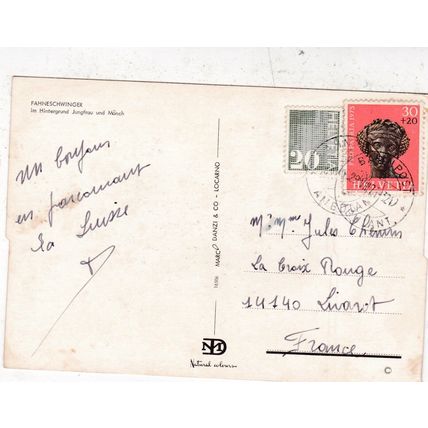 FAHNESCHWINGER
Im Hintergrund Jungfrau und Mönch
un bonjour
en parcourant
la Suisse
MARCO DANZI & CO - LOCARNO
HELVETIA
20
30
+20
PRO PATRIA 1975
HELVETIA
M. Mme Jules
La Croix Rouge
14140 Livarot
France
Natural colours
C